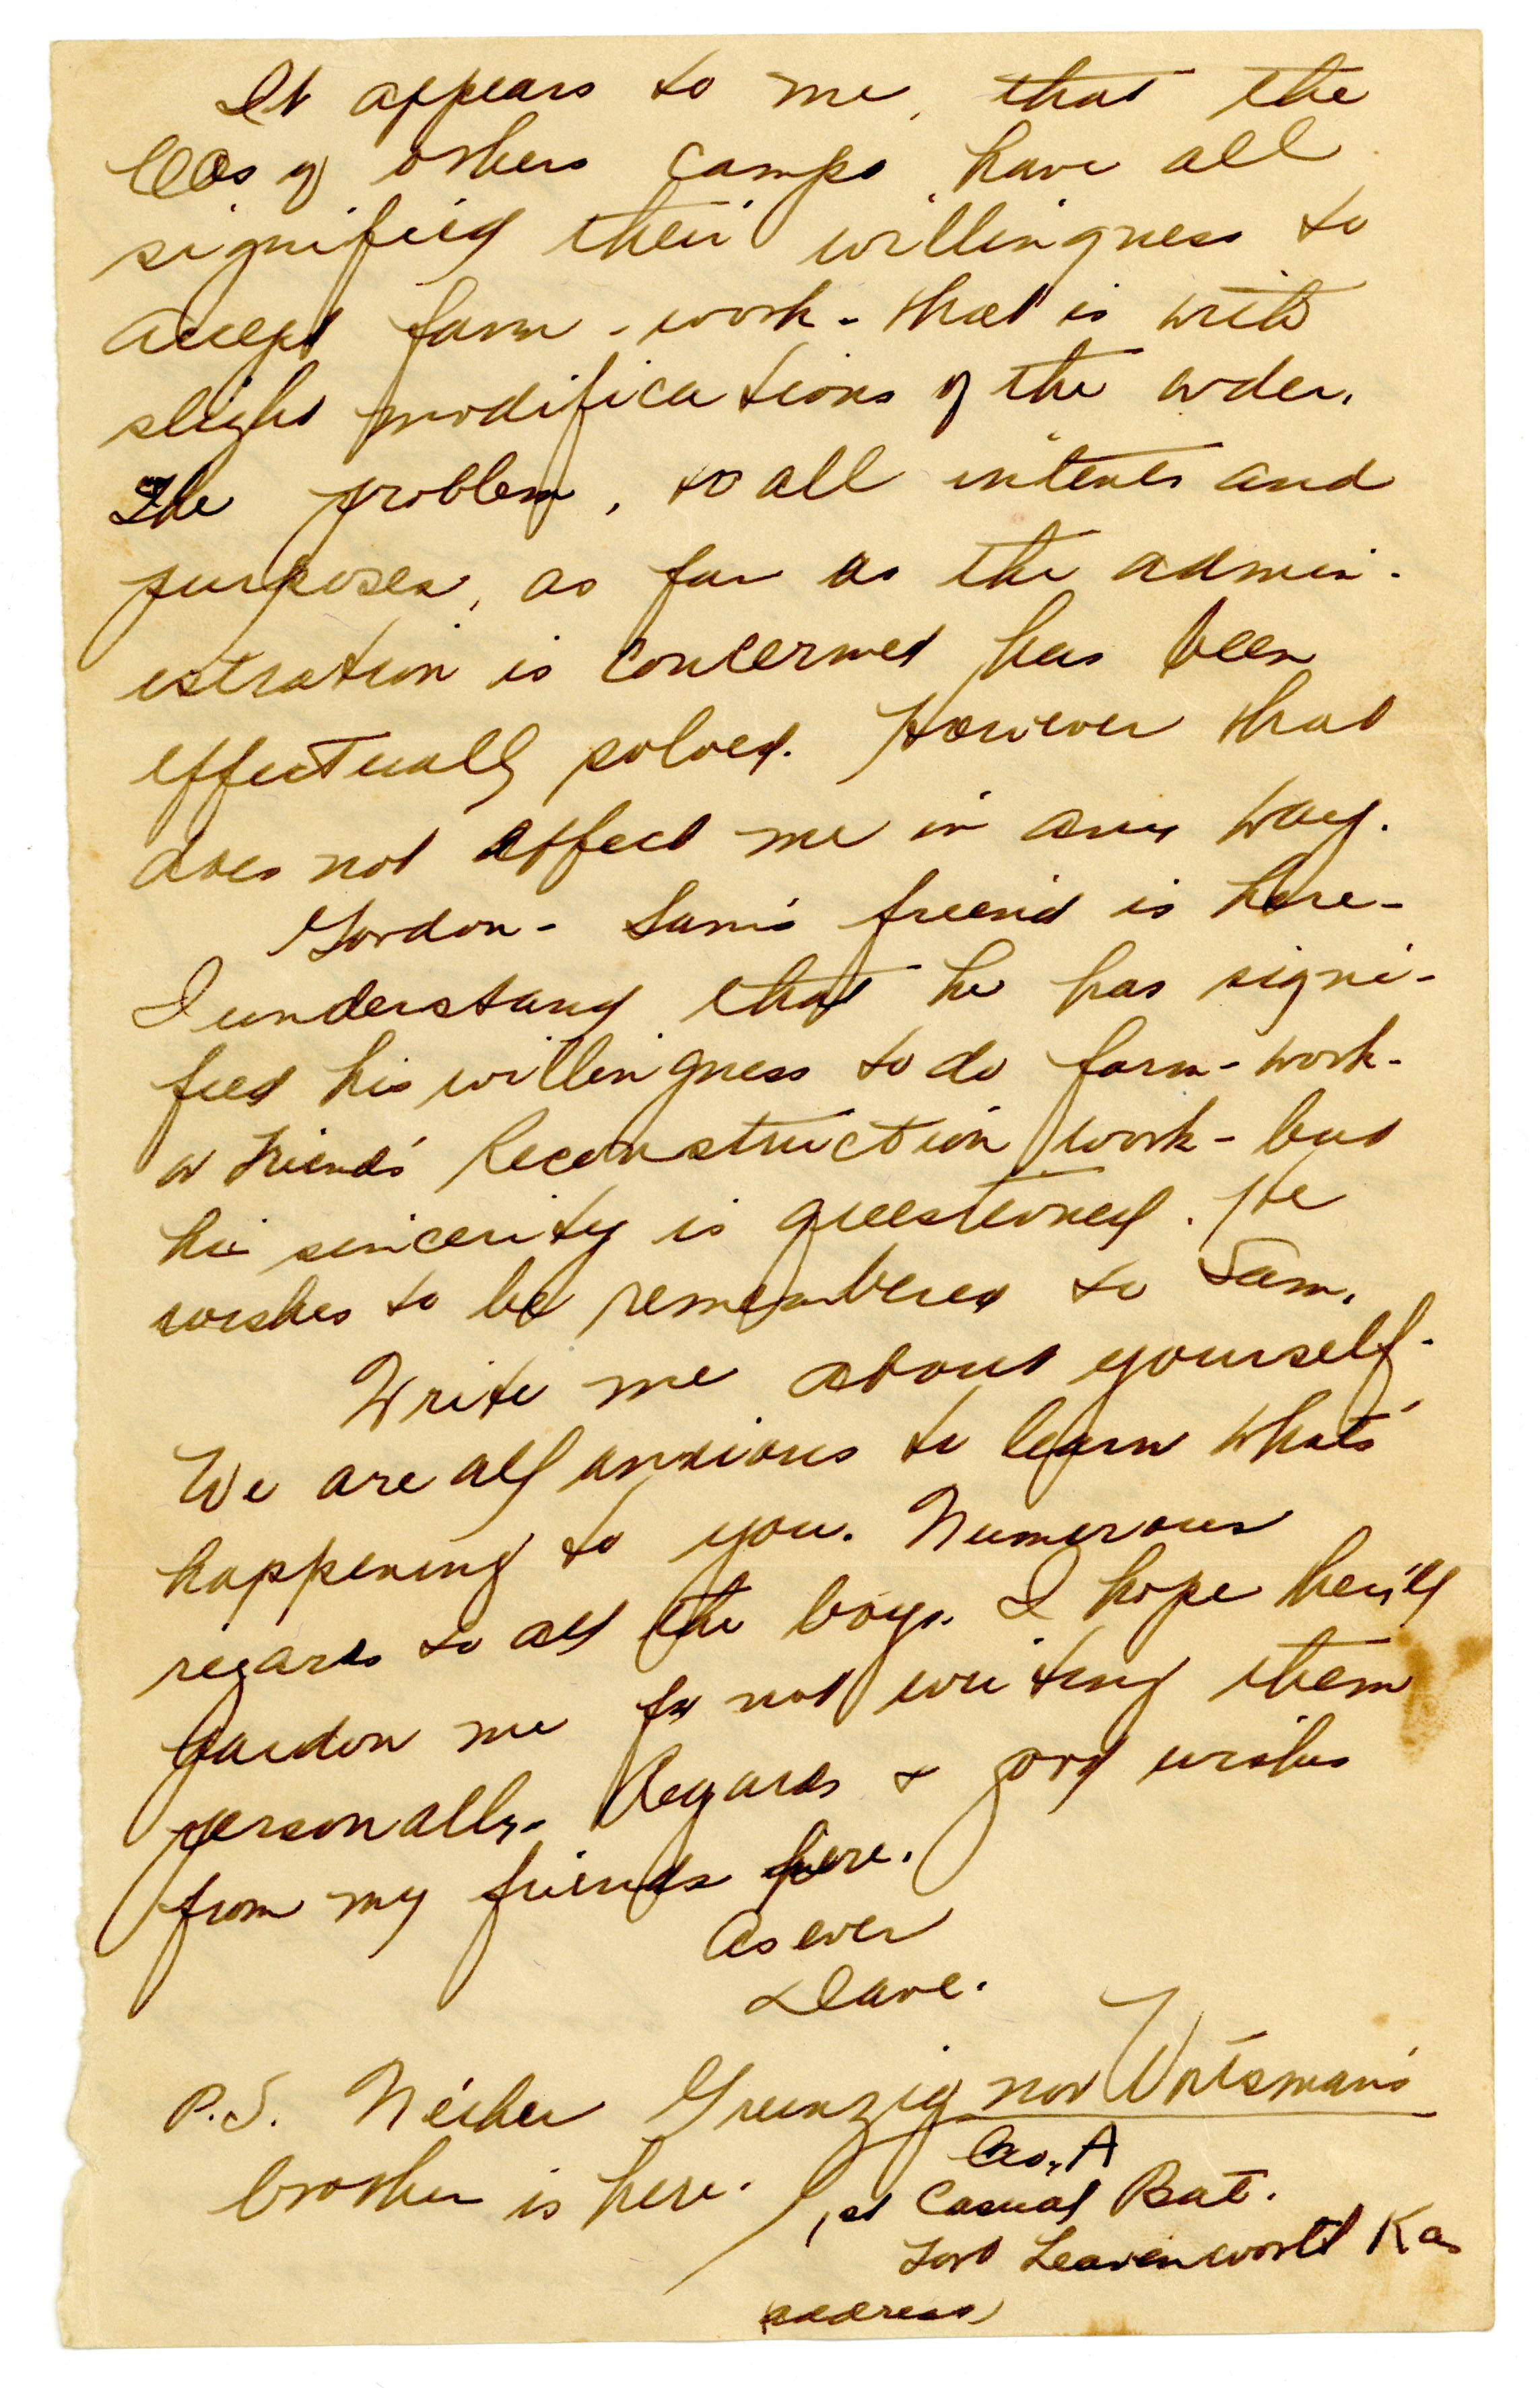 It appears to me, that the
COs of others camps, have all
signified their willingness to
accept farm-work - that is with
slight modifications of the order.
The problem, to all intents and
purposes, as far as the admin-
istration is concerned has been
effectually solved. However that
does not affect me in any way.
Gordon - Sam's friend is here -
I understand that he has signi-
fied his willingness to do farm-work -
or Friends' Reconstruction work - but
his sincerity is questioned. He
wishes to be remembered to Sam.
Write me about yourself -
We are all anxious to learn what's
happening to you. Numerous
regards to all the boys. I hope
pardon me for not writing them
personally. Regards & good wishes
from my friends here.
As ever
Dave.
P.S. Neither Grunzig nor Wortsman's
brother is here.
Co. A
1st Casual Bat.
Fort Leavenworth Kas
address